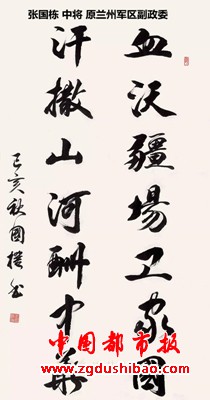 张国栋 中将 原兰州军区副政委
血沃疆場卫家國
汗撒山河酬中華
己亥秋國棟书
中国都市报
www.zgdushibao.com